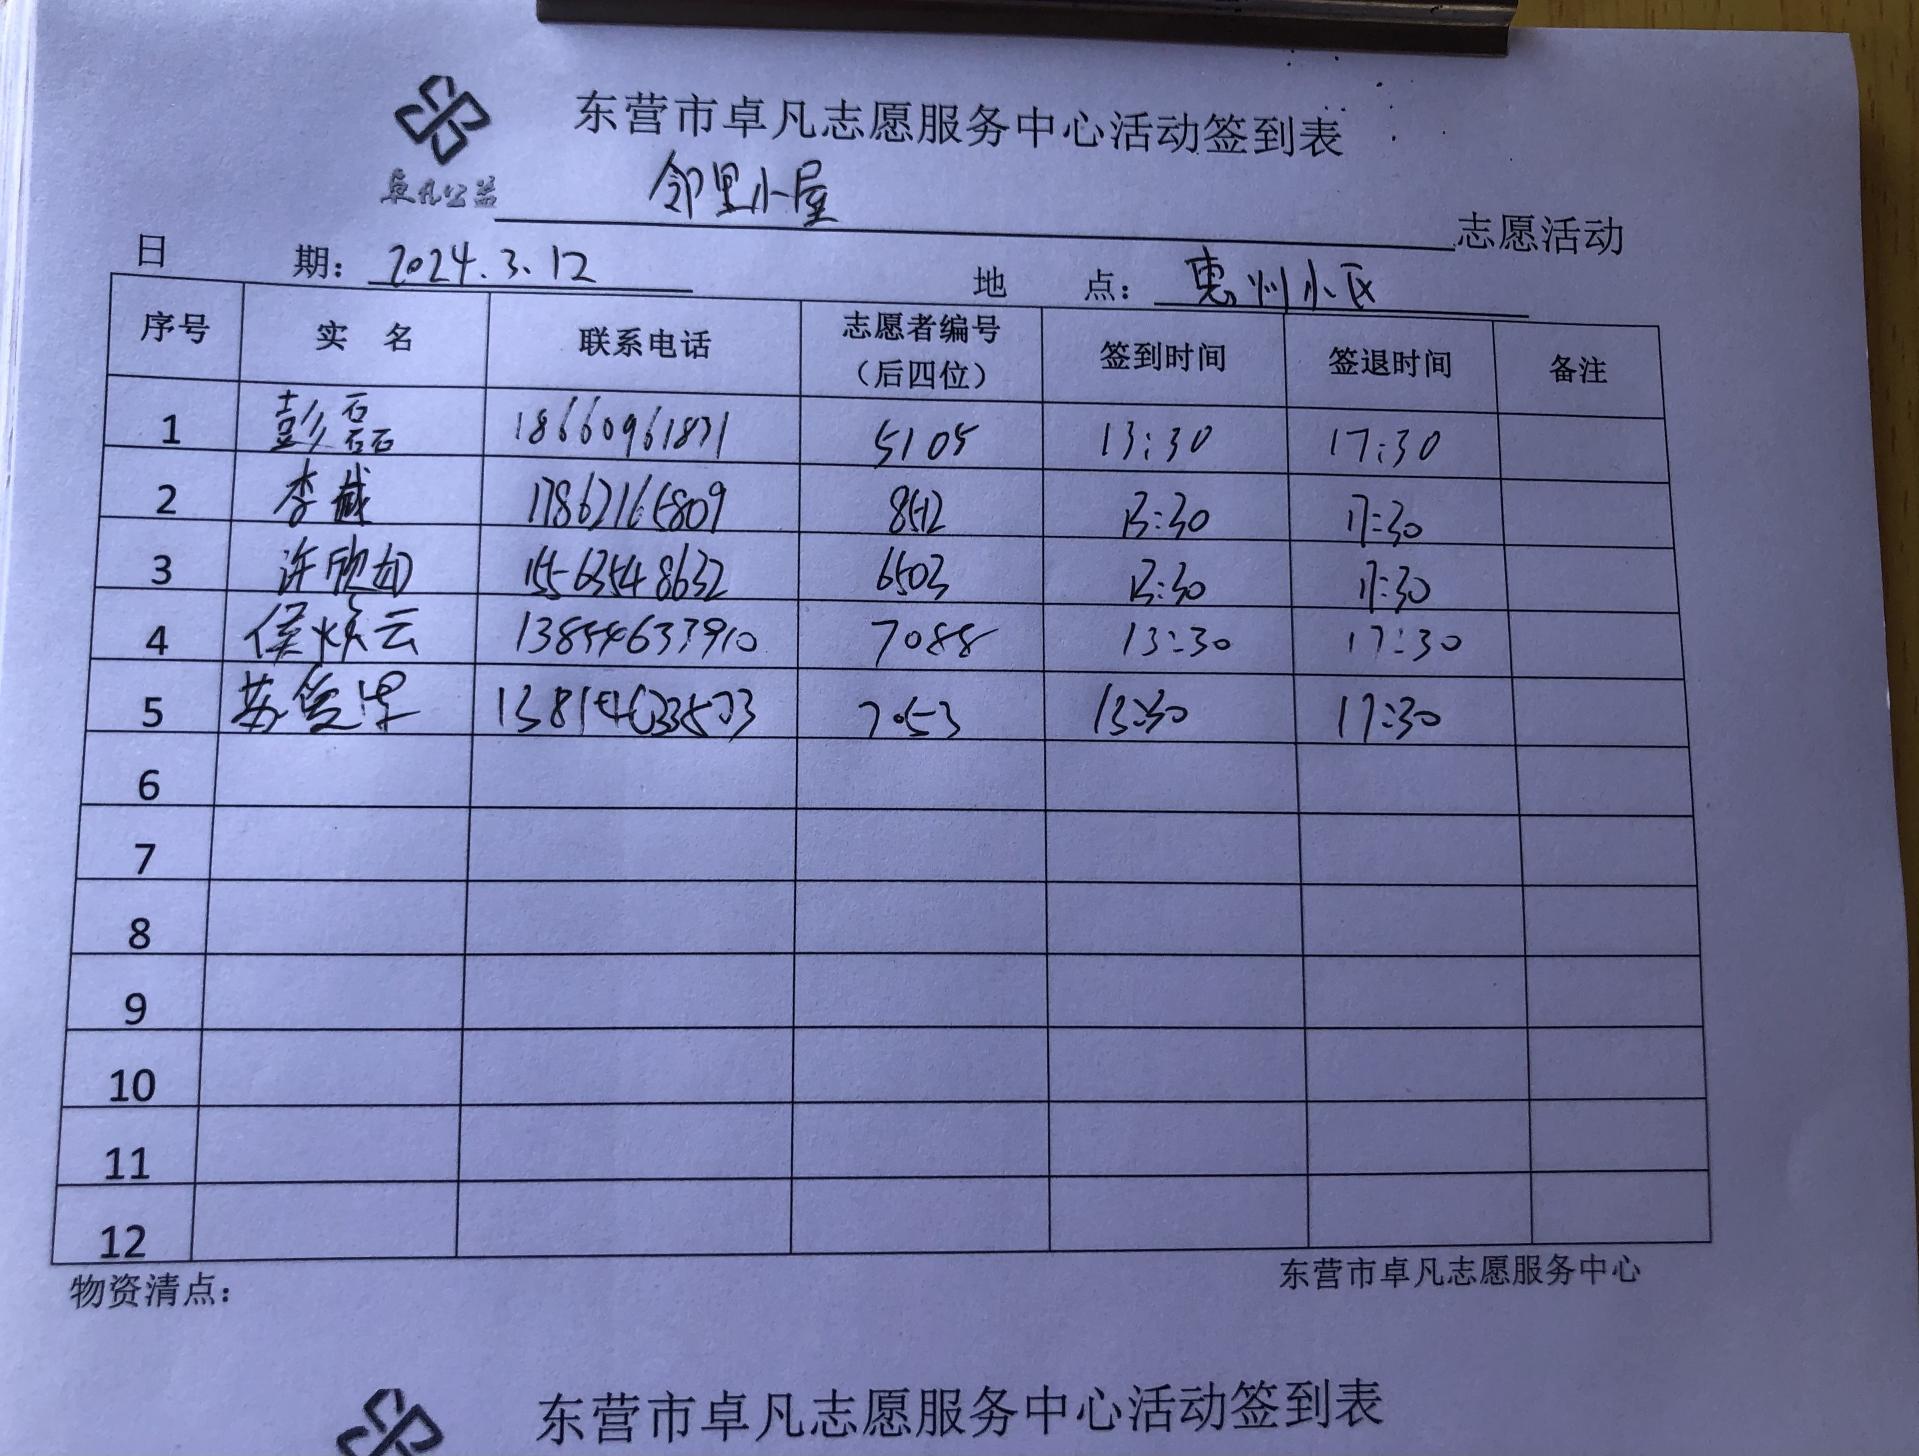 东营市卓凡志愿服务中心活动签到表
卓凡公益
邻里小屋 志愿活动
日 期: 2024.3.12 地 点: 惠州小区
序号 实 名 联系电话 志愿者编号（后四位） 签到时间 签退时间 备注
1 彭磊 18660961831 5105 13:30 17:30
2 李 17862165809 8512 13:30 17:30
3 许欣如 15563548632 6503 13:30 17:30
4 侯焕云 13854637910 7088 13:30 17:30
5 苏 7053 13:30 17:30
6
7
8
9
10
11
12
物资清点: 东营市卓凡志愿服务中心
东营市卓凡志愿服务中心活动签到表